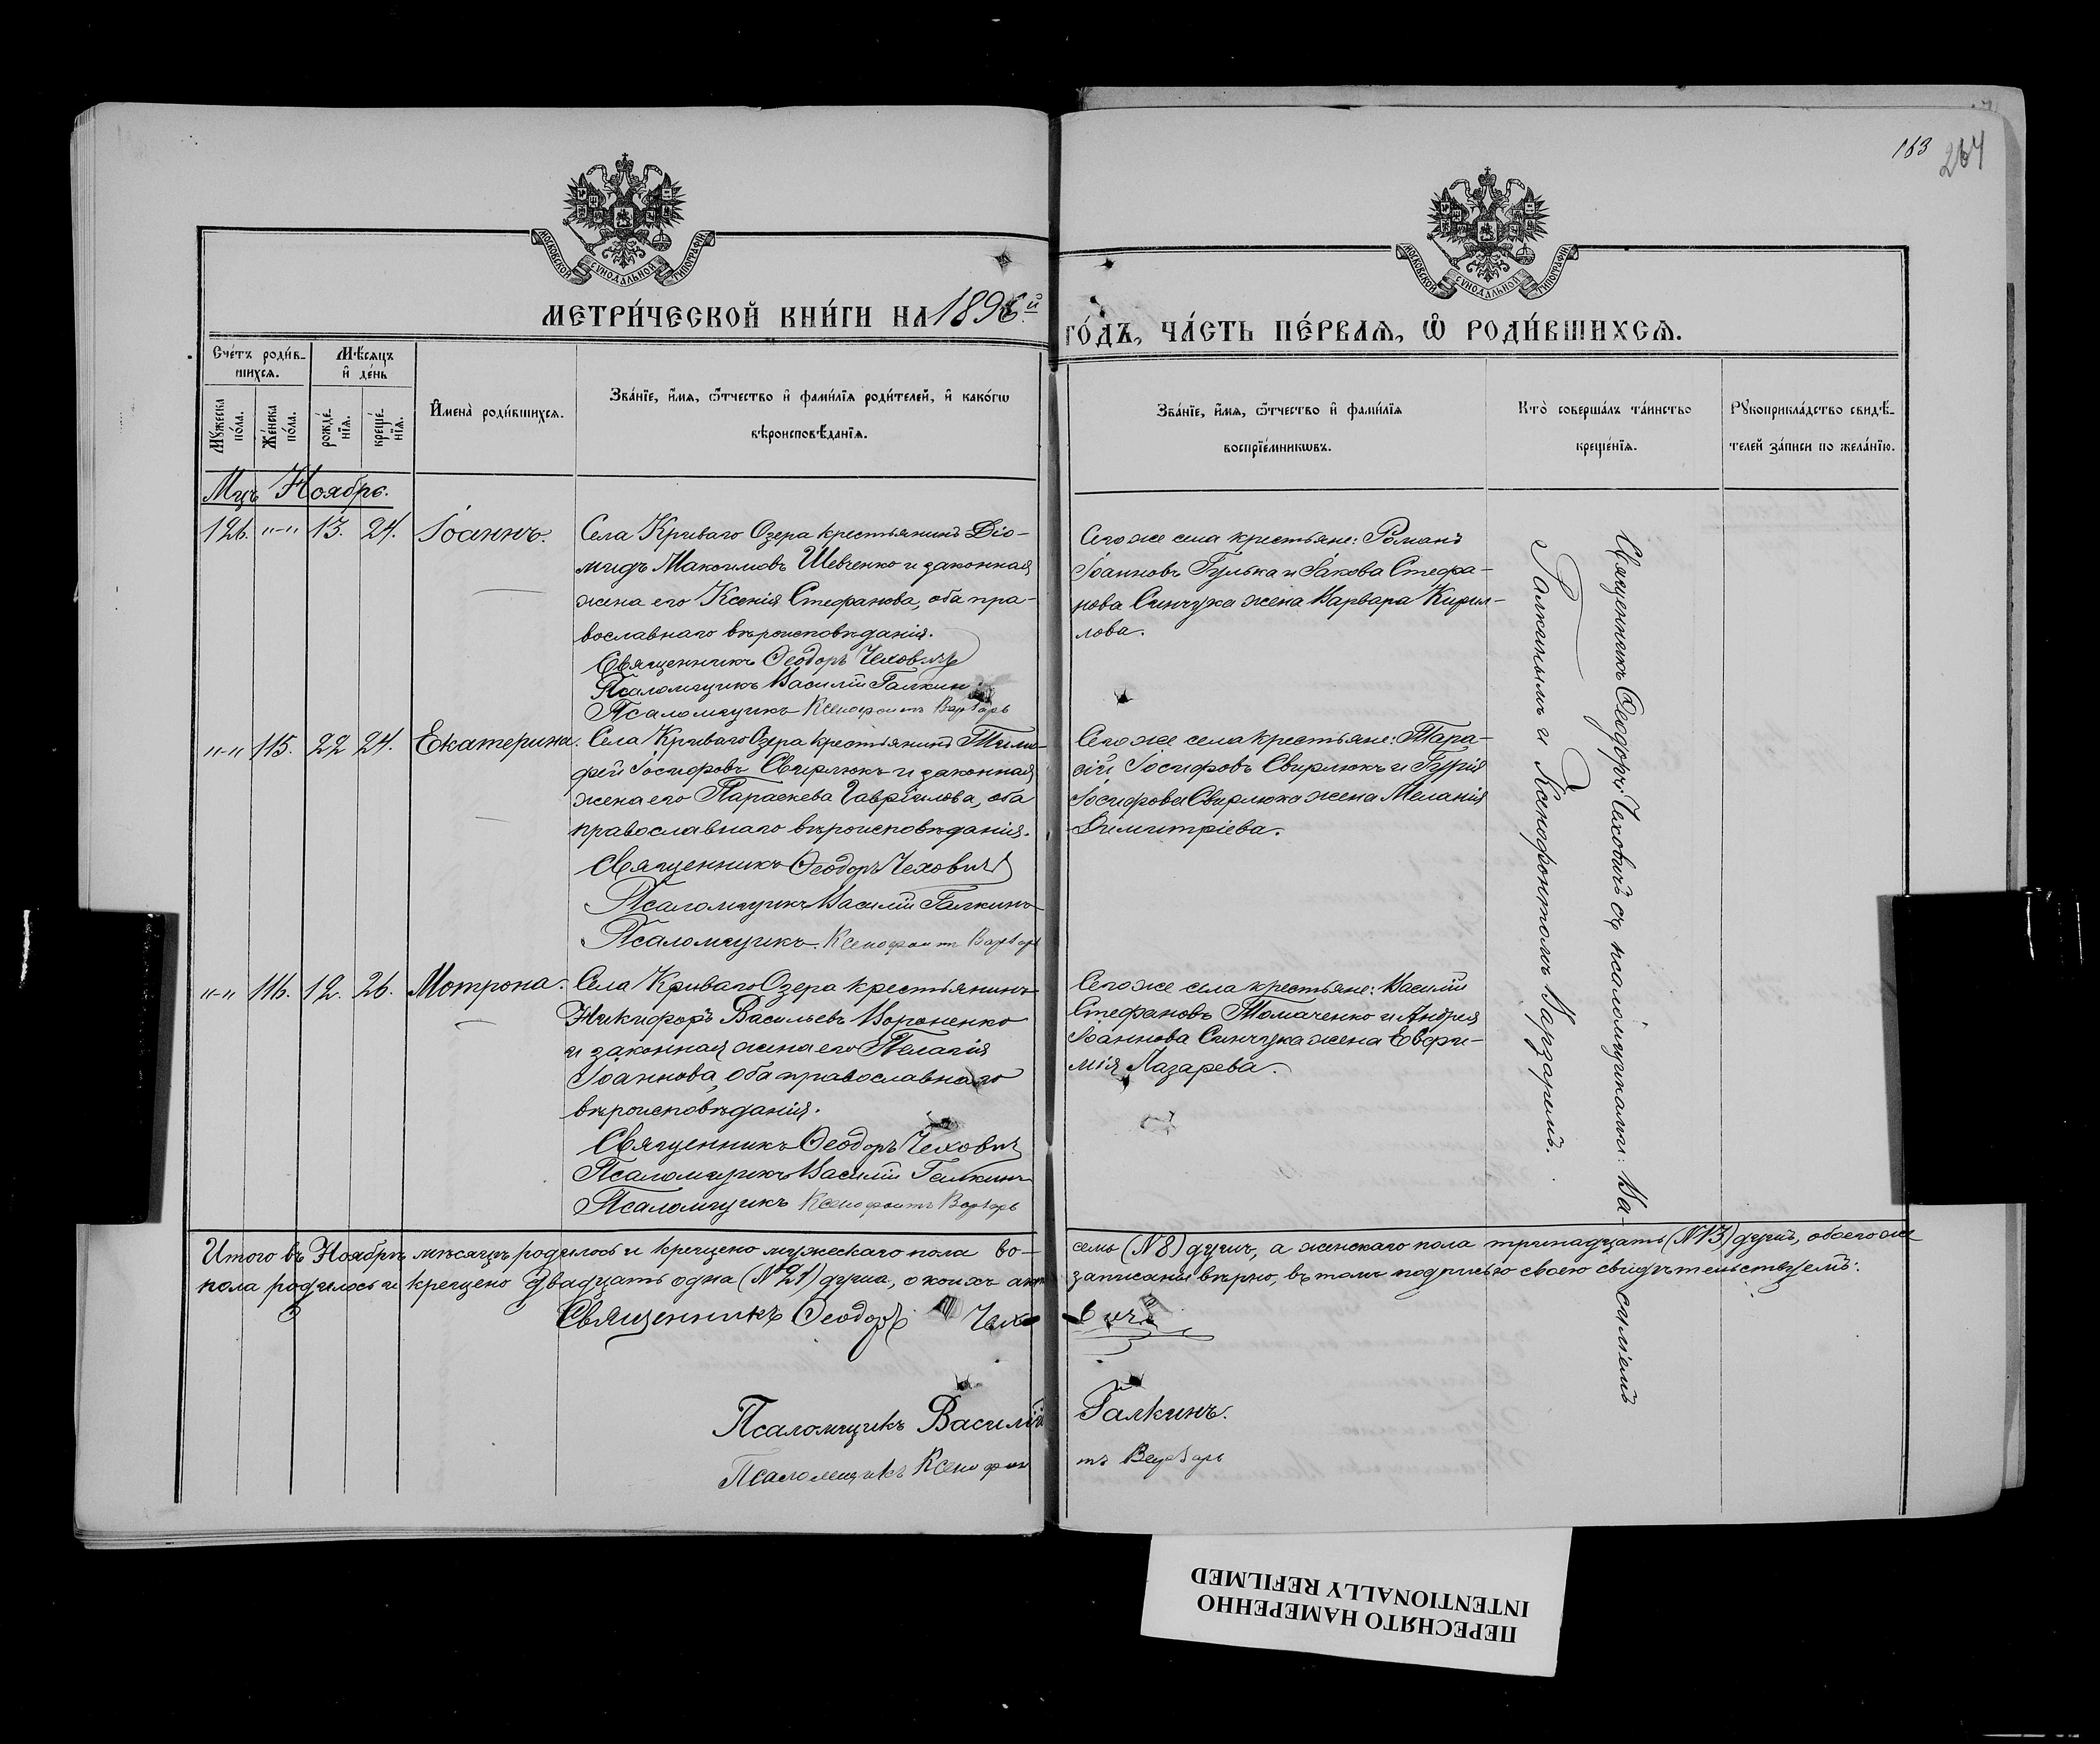 183 264
МОСКОВСКОЙ СѴНОДАЛЬНОЙ ТИПОГРАФІИ
МОСКОВСКОЙ СѴНОДАЛЬНОЙ ТИПОГРАФІИ
МЕТРИ́ЧЕСКОЙ КНИ́ГИ НА 1896й
ГО́ДЪ, ЧА́СТЬ ПЕ́РВАѦ, Ѽ РОДИ́ВШИХСѦ.
Сче́тъ роди́в-
шихсѧ.
Мѣ́сѧцъ
и҆ де́нь
Мꙋ́жеска по́ла.
Же́нска по́ла.
рожде́-
нїѧ.
креще́-
нїѧ.
И҆мена̀ роди́вшихсѧ.
Зва́нїе, и҆́мѧ, ѻ҆́тчество и҆ фами́лїѧ роди́телей, и҆ како́гѡ
вѣроисповѣ́данїѧ.
Зва́нїе, и҆́мѧ, ѻ҆́тчество и҆ фами́лїѧ
воспрїе́мникѡвъ.
Кто̀ соверша́лъ та́инство
креще́нїѧ.
Рꙋкоприкла́дство свидѣ́-
телей за́писи по жела́нїю.
Мцъ Ноябрь.
126. "-" 13. 24. Іоаннъ.
Села Криваго Озера крестьянинъ Діо-
мидъ Максимовъ Шевченко и законная
жена его Ксенія Стефанова, оба пра-
вославнаго вѣроисповѣданія.
Священникъ Ѳеодоръ Чеховичъ
Псаломщикъ Василій Галкинъ
Псаломщикъ Ксенофонтъ Варзарь
Сего же села крестьяне: Романъ
Іоанновъ Гулька и Іакова Стефа-
нова Синчука жена Варвара Кирил-
лова.
"-" 115. 22 24. Екатерина.
Села Криваго Озера крестьянинъ Тимо-
фей Іосифовъ Свирлюкъ и законная
жена его Параскева Гавріилова, оба
православнаго вѣроисповѣданія.
Священникъ Ѳеодоръ Чеховичъ
Псаломщикъ Василій Галкинъ
Псаломщикъ Ксенофонтъ Варзарь
Сего же села крестьяне: Тара-
сій Іосифовъ Свирлюкъ и Гурія
Іосифова Свирлюка жена Меланія
Димитріева.
"-" 116. 12. 26. Мотрона.
Села Криваго Озера крестьянинъ
Никифоръ Васильевъ Вороненко
и законная жена его Пелагія
Іоаннова, оба православнаго
вѣроисповѣданія.
Священникъ Ѳеодоръ Чеховичъ
Псаломщикъ Василій Галкинъ
Псаломщикъ Ксенофонтъ Варзарь
Сего же села крестьяне: Василій
Стефановъ Томаченко и Андрея
Іоаннова Синчука жена Евфи-
мія Лазарева.
Священникъ Ѳеодоръ Чеховичъ съ псаломщиками: Ва-
силіемъ
Галкинымъ и Ксенофонтомъ Варзаремъ.
Итого въ Ноябрѣ мѣсяцѣ родилось и крещено мужескаго пола во-
семь (№ 8) душъ, а женскаго пола тринадцать (№ 13) душъ, обоего же
пола родилось и крещено двадцать одна (№ 21) душа, о коихъ акты
записаны вѣрно, въ томъ подписью своею свидѣтельствуемъ:
Священникъ Ѳеодоръ Чеховичъ
Псаломщикъ Василій Галкинъ.
Псаломщикъ Ксенофонтъ Варзарь
ПЕРЕСНЯТО НАМЕРЕННО
INTENTIONALLY REFILMED